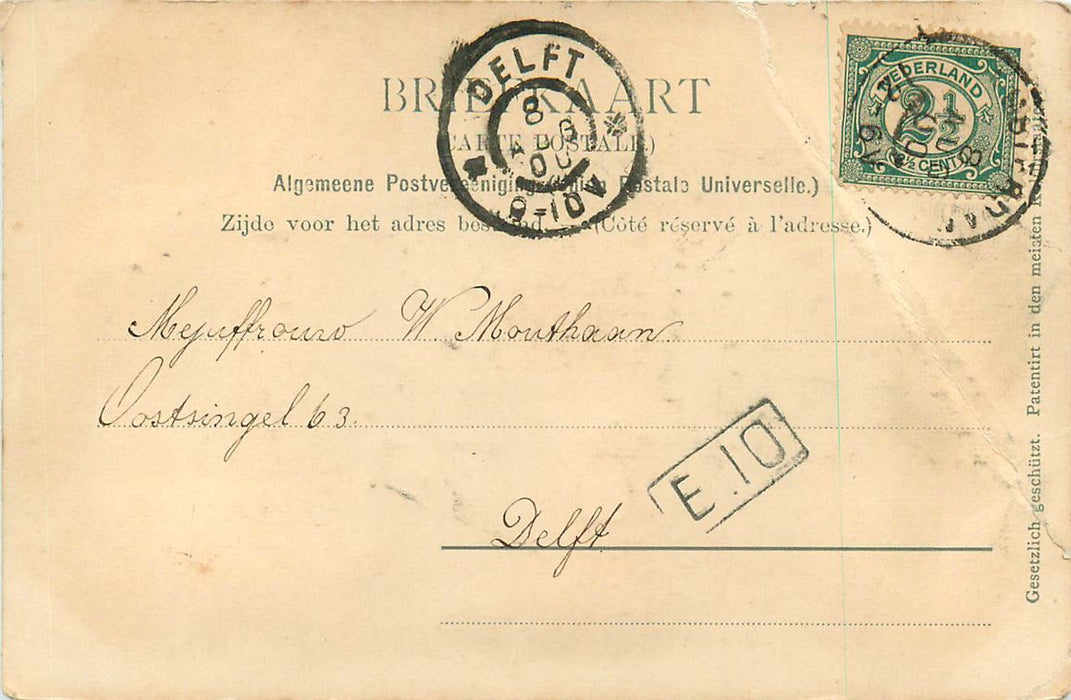 BRIEFKAART
(CARTE POSTALE)
Algemeene Postvereeniging (Union Postale Universelle.)
Zijde voor het adres bestemd. (Côté réservé à l'adresse.)
DELFT
8
AUG
00
9-10V
NEDERLAND
2½
(2½ CENT)
Mejuffrouw W. Mouthaan
Oostsingel 63.
Delft
E.10
Gesetzlich geschützt. Patentirt in den meisten